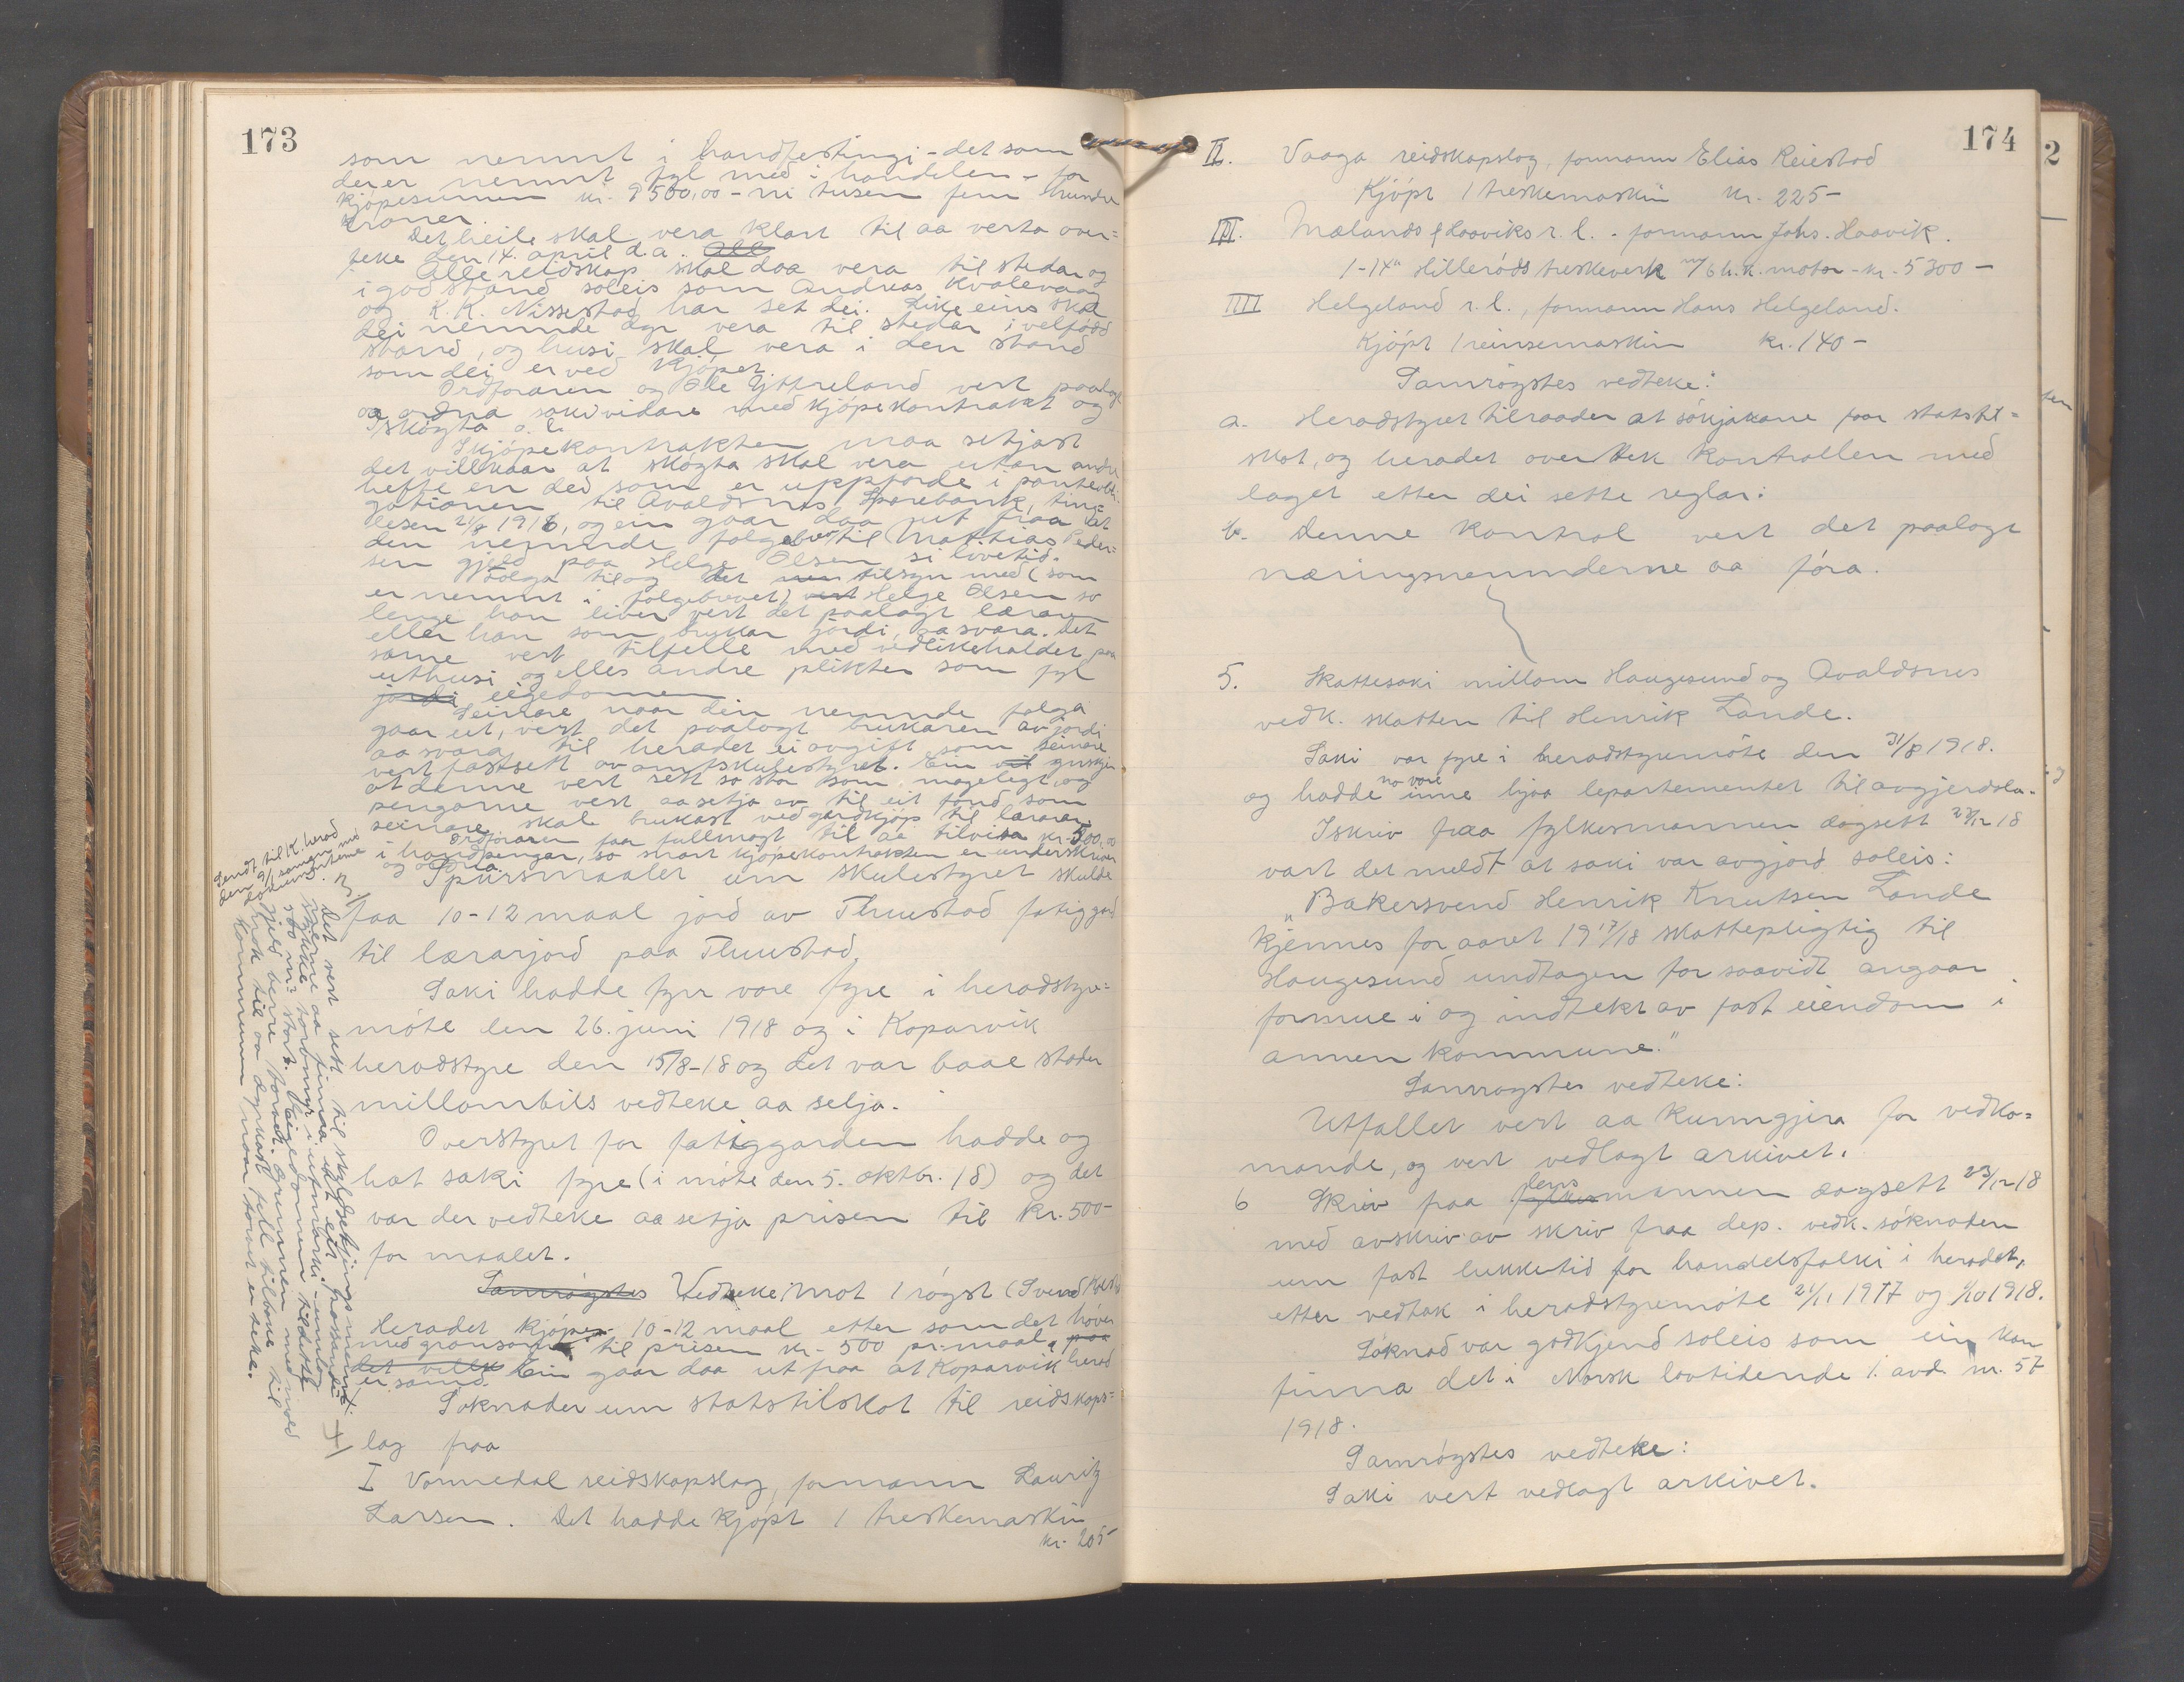 173
som nemnt i handfestingi - det som
der er nemnt fyl med i handelen - for
kjöpesummen kr. 9500,00 - ni tusen fem hundre
kroner.
Det heile skal vera klart til aa verta over=
teke den 14. april d.a. All
Alle reidskap skal daa vera til stedar og
i god stand soleis som Andreas Kvalevaag
og K. K. Nissestad har set dei. Like eins skal
dei nemnde dyr vera til stedar i velfödd
stand, og husi skal vera i den stand
som dei er ved kjöpet.
Ordforaren og Ole Yttreland vert paalagt
og ordna saki vidare med kjöpekontrakt og
skögta o. l.
I kjöpekontrakten maa setjast
det villkaar at skögta skal vera utan andre
hefte en ded som er uppforde i pantobli-
gationen til Avaldsnes Sparebank, ting=
lesen 21/8 1916, og ein gaar daa ut fraa at
den nemnde folgebrev til Mattias Peder=
sen gjeld paa Helge Olsen si livetid.
Folga til og det tilsyn med (som
er nemnt i folgebrevet) vert Helge Olsen so
lenge han liver vert det paalagt læraren
eller han som brukar jordi, aa svara. Det
same vert tilfelle med vedlikehaldet paa
uthusi og elles andre plikter som fyl
jordi eigedomen
Seinare naar den nemnde folga
gaar ut, vert det paalagt brukaren av jordi
aa svara til heradet ei avgift som seinare
vert fastsett av amtskulestyret. Ein vil ynskje
at denne vert sett so stor som mogelegt, og
pengarne vert aa setja av til eit fond som
seinare skal brukast ved gardkjöp til lærarar.
Ordforaren faar fullmagt til aa tilvisa kr. 500,00
i handpengar, so snart kjöpekontrakten er underskriven
og ordna.
3/ Spursmaalet um skulestyret skulde
faa 10-12 maal jord av Tluustad fatiggard
til lærarjord paa Tluustad.
Saki hadde fyrr vore fyre i heradstyre=
möte den 26. juni 1918 og i Koparvik
heradstyre den 15/8-18 og det var baae stader
millombils vedteke aa selja.
Overstyret for fatiggarden hadde og
hat saki fyre (i möte den 5. oktbr. 18) og det
var der vedteke aa setja prisen til kr. 500-
for maalet.
Samrøgstes Vedteke mot 1 rögst (Svend
Heradet kjöper 10-12 maal etter som det höver
med gransom til prisen kr. 500 pr. maal, paa
det villk Ein gaar daa ut fraa at Koparvik herad
er samd.
4/ Söknader um statstilskot til reidskaps=
lag fraa
I Vormedal reidskapslag, formann Lauritz
Larsen. Det hadde kjöpt 1 treskemaskin
kr. 205-
Sendt til K. herad
den 9/1 saman med
dokumenterne
Det vert sett til skyldsetjingsmennt.
nerne aa finna ut eit passande
stykke torvmyr i utmarki - umlag
so m² stort. Eigedomen tildelte
gjeld berre torvet. Grunnen med rived
rett til aa dyrkast fell tilbake til
kommunen naar torvet er teke.
174
II. Vaaga reidskapslag, formann Elias Reiestad
Kjöpt 1 treskemaskin kr. 225-
III. Mælands & Haaviks r. l. - formann Johs. Haavik.
1-14" Hilleröds treskeverk m/ 6 h.k. motor - kr. 5300-
IIII Helgeland r. l., formann Hans Helgeland.
Kjöpt 1 reinsemaskin kr. 140-
Samrögstes vedteke:
a. Heradstyret tilraader at sökjarane faar statstil=
skot, og heradet overtek kontrollen med
laget etter dei sette reglar:
b. Denne kontrol vert det paalagt
næringsnemnderne aa föra.
5. Skattesaki millom Haugesund og Avaldsnes
vedk. skatten til Henrik Lande.
Saki var fyre i heradstyremöte den 31/8 1918.
og hadde no vore inne hjaa lepartementet til avgjerdsla.
I skriv fraa fylkesmannen dagsett 23/12 18
vart det meldt at saki var avgjord soleis:
"Bakersvend Henrik Knutsen Lande
kjennes for aaret 1917/18 skattepligtig til
Haugesund undtagen for saavidt angaar
formue i og indtekt av fast eiendom i
annen kommune."
Samrögstes vedteke:
Utfallet vert aa kunngjera for vedko=
mande, og vert vedlagt arkivet.
6 Skriv fraa fylkesmannen lens dagsett 23/12 18
med avskriv av skriv fraa dep. vedk. söknaden
um fast lukketid for handelsfolki i heradet,
etter vedtak i heradstyremöte 21/11 1917 og 1/10 1918.
Söknad var godkjend soleis som ein kan
finna det i Norsk lovtidende 1. avd. nr. 57
1918.
Samrögstes vedteke:
Saki vert vedlagt arkivet.
2